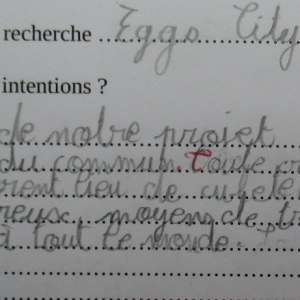 recherche Eggs City
intentions ?
de notre projet
du commun. Toute
rent lieu de
reux moyens de
à tout le monde.